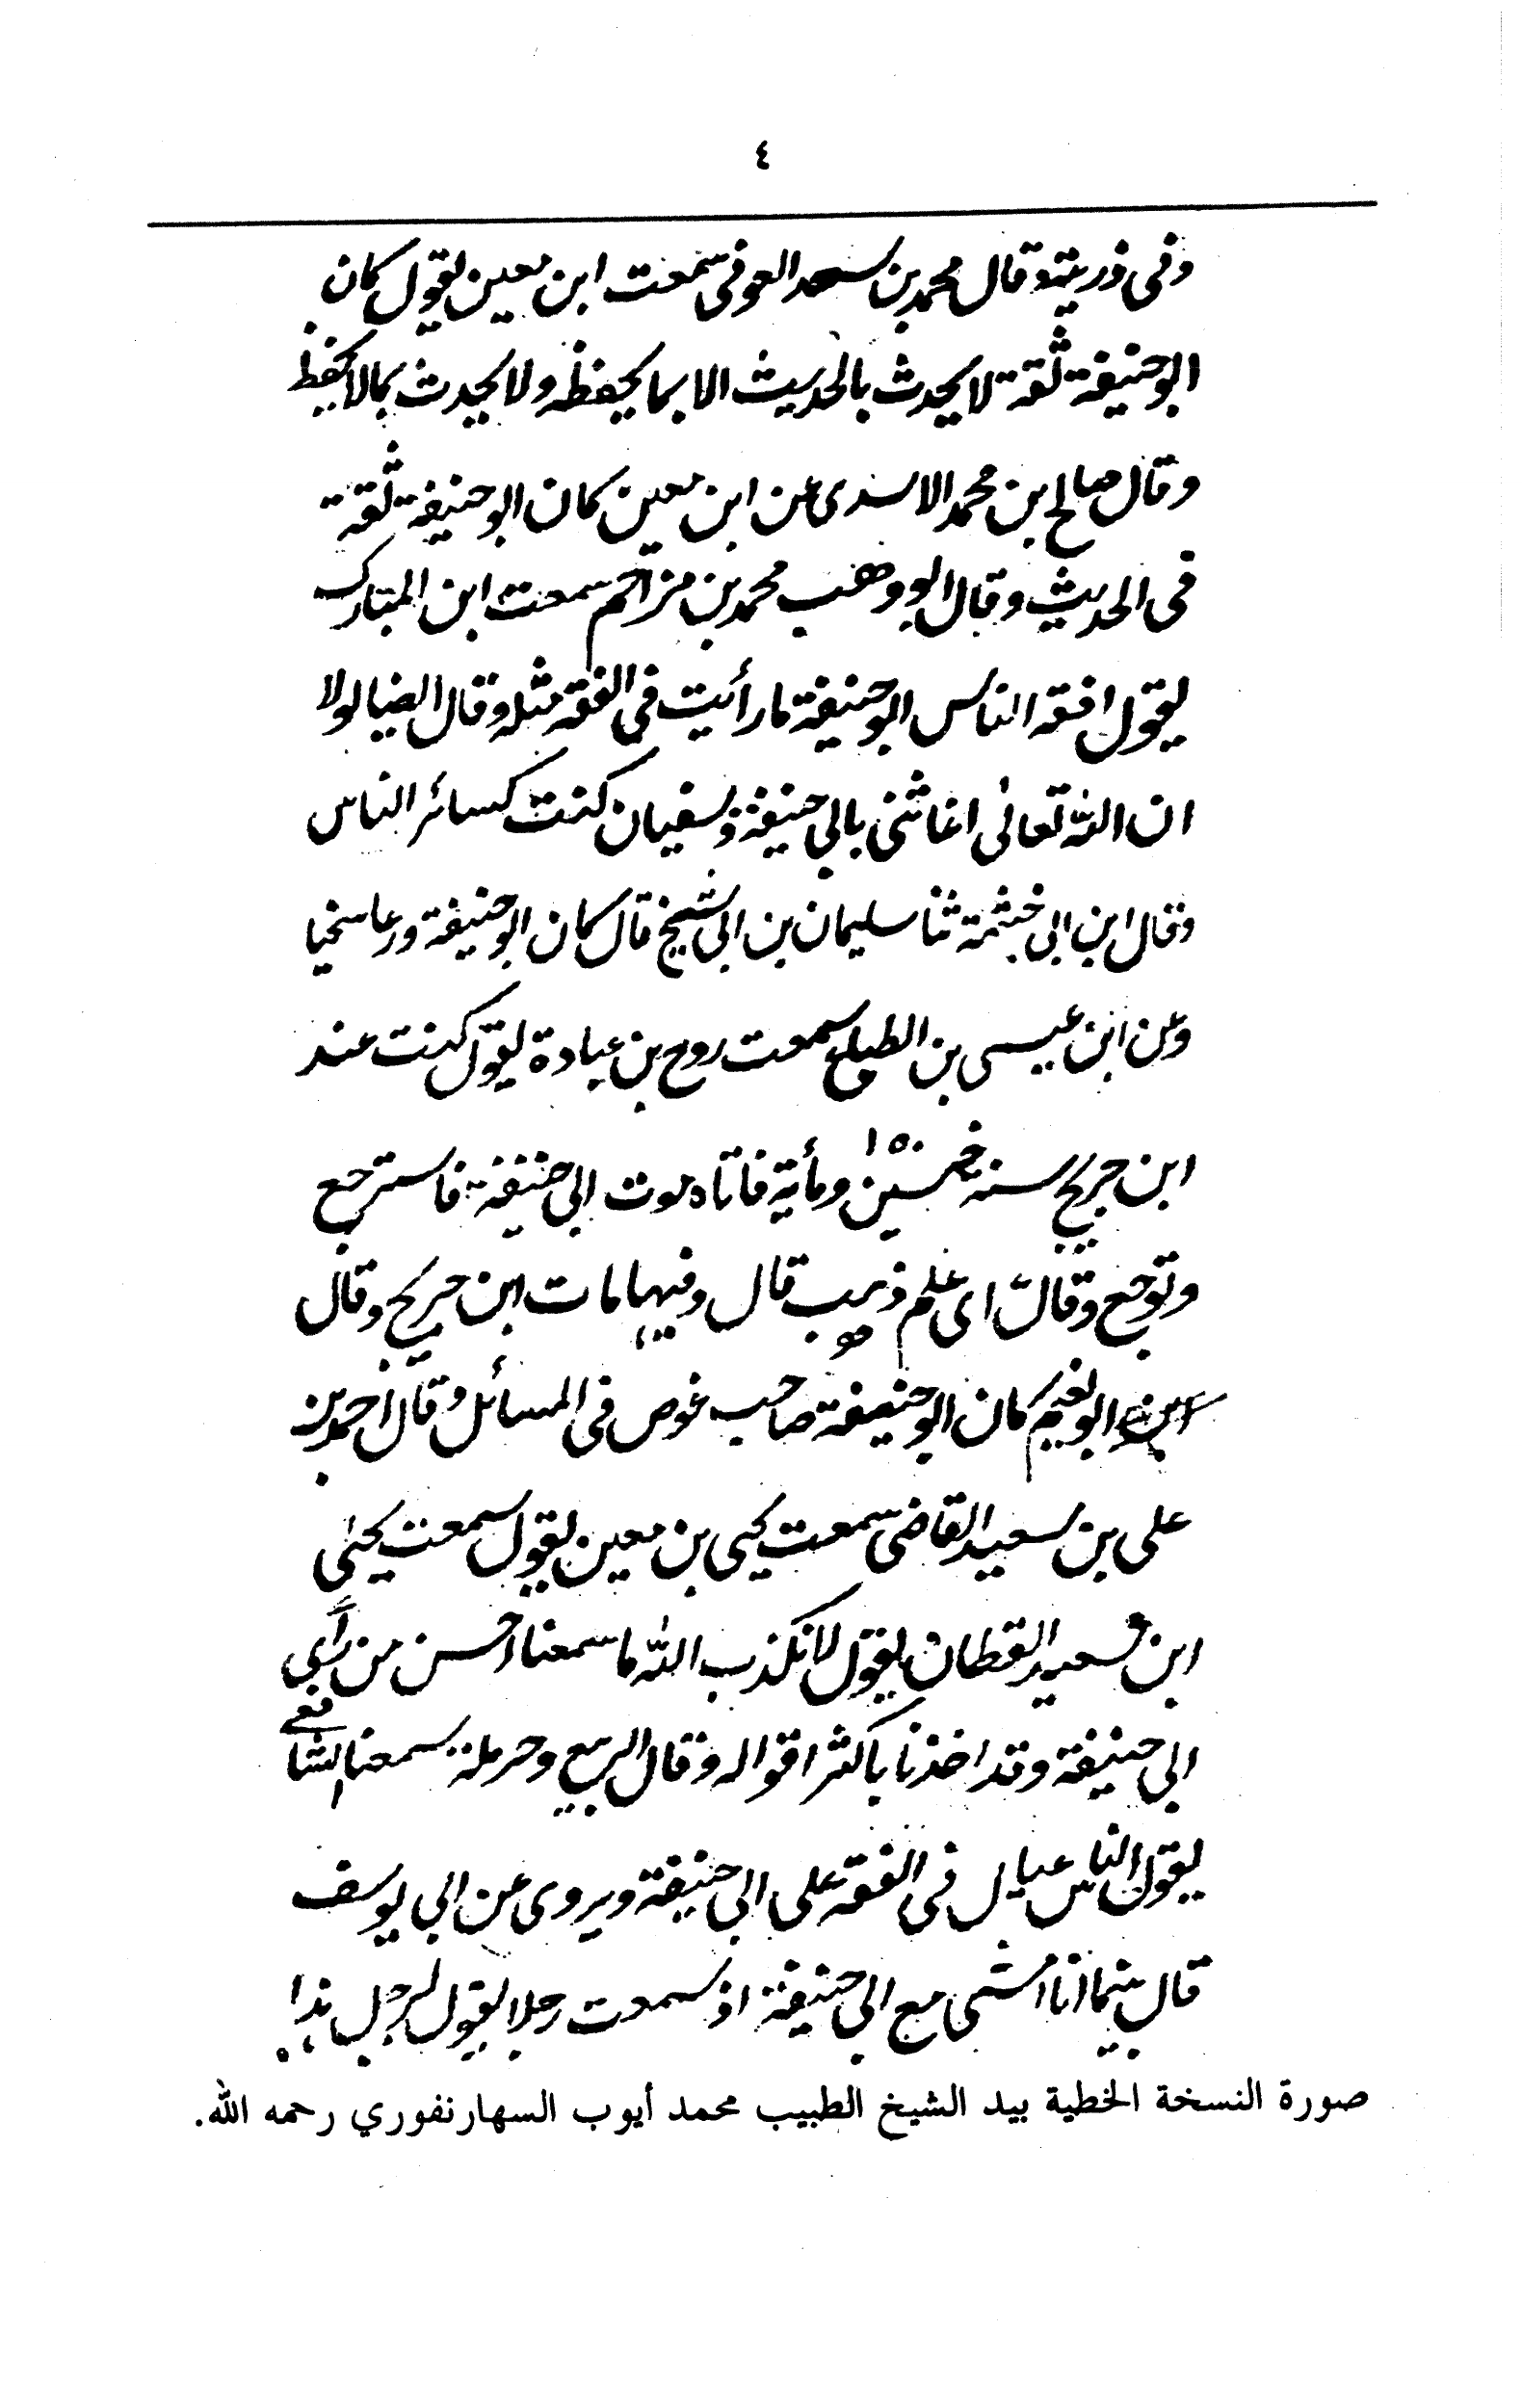 ٤
وفى ذريته وقال محمد بن سعد العوفى سمعت ابن معين يقول كان
ابو حنيفة ثقة لا يحدث بالحديث الا بما يحفظه ولا يحدث بما لا يحفظ
وقال صالح بن محمد الاسدى عن ابن معين كان ابو حنيفة ثقة
فى الحديث وقال ابو وهب محمد بن مزاحم سمعت ابن المبارك
يقول افقه الناس ابو حنيفة ما رأيت فى الفقه مثله وقال ايضا لولا
ان الله تعالى اغاثنى بابي حنيفة وسفيان كنت كسائر الناس
وقال ابن ابى خيثمة ثنا سليمان بن ابى شيخ قال كان ابو حنيفة ورعا سخيا
وعن ابن عيسى بن الطباع سمعت روح بن عبادة يقول كنت عند
ابن جريج سنة خمسين ١٥٠ ومأية فاتاه موت ابى حنيفة فاسترجع
وتوجع وقال اى علم ذهب قال وفيها مات ابن جريج وقال
ابو نعيم كان ابو حنيفة صاحب غوص فى المسائل وقال احمد بن
على بن سعيد القاضى سمعت يحيى بن معين يقول سمعت يحيى
ابن سعيد القطان يقول لا نكذب الله ما سمعنا احسن من رأى
ابى حنيفة وقد اخذنا باكثر اقواله وقال الربيع وحرملة سمعنا الشافعى
يقول الناس عيال فى الفقه على ابى حنيفة ويروى عن ابي يوسف
قال بينما انا امشى مع ابى حنيفة اذ سمعت رجلا يقول لرجل هذا
صورة النسخة الخطية بيد الشيخ الطبيب محمد أيوب السهارنفوري رحمه الله.